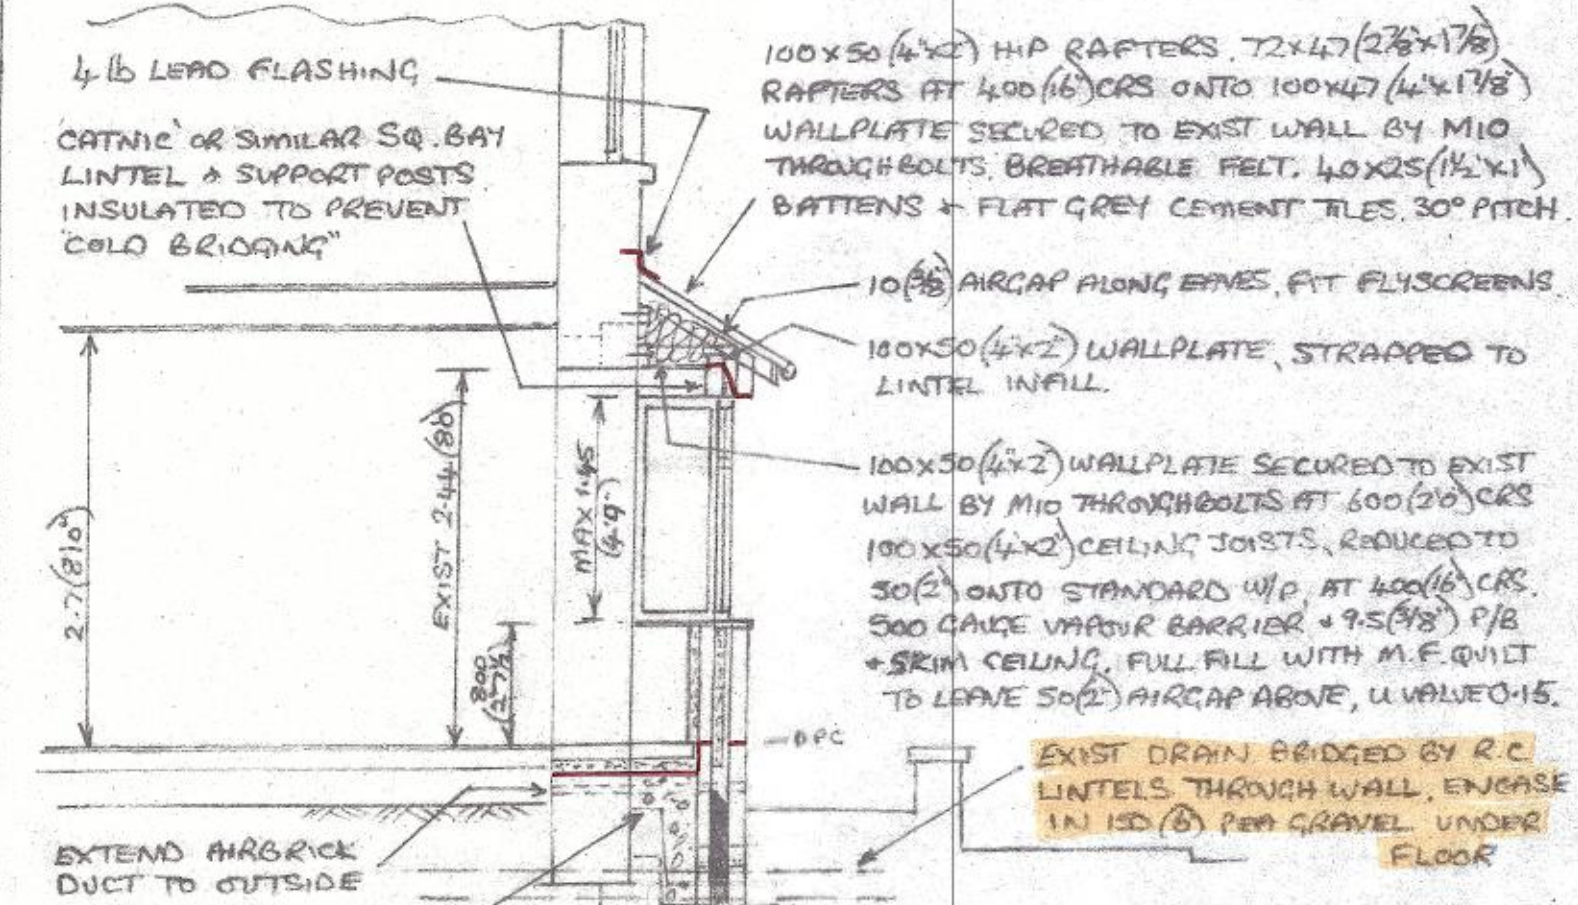 4 lb LEAD FLASHING
CATNIC' OR SIMILAR SQ. BAY
LINTEL & SUPPORT POSTS
INSULATED TO PREVENT
"COLD BRIDGING"
100x50 (4"x2") HIP RAFTERS. 72x47 (27/8"x1 7/8")
RAFTERS AT 400 (16") CRS ONTO 100x47 (4"x1 7/8")
WALLPLATE SECURED TO EXIST WALL BY M10
THROUGHBOLTS. BREATHABLE FELT. 40x25 (1½"x1")
BATTENS & FLAT GREY CEMENT TILES. 30° PITCH.
10 (3/8") AIRGAP ALONG EAVES, FIT FLYSCREENS
100x50 (4"x2") WALLPLATE, STRAPPED TO
LINTEL INFILL.
100x50 (4"x2") WALLPLATE SECURED TO EXIST
WALL BY M10 THROUGHBOLTS AT 600 (2'0") CRS
100x50 (4"x2") CEILING JOISTS, REDUCED TO
50 (2") ONTO STANDARD W/P, AT 400 (16") CRS.
500 GAUGE VAPOUR BARRIER & 9.5 (3/8") P/B
& SKIM CEILING. FULL FILL WITH M.F. QUILT
TO LEAVE 50 (2") AIRGAP ABOVE, U VALUE 0.15.
2.7 (8'10")
EXIST 2.44 (8'0")
MAX 1.45
(4'9")
800
(2'7½")
DPC
EXIST DRAIN BRIDGED BY R.C
LINTELS THROUGH WALL. ENCASE
IN 150 (6") PEA GRAVEL UNDER
FLOOR
EXTEND AIRBRICK
DUCT TO OUTSIDE